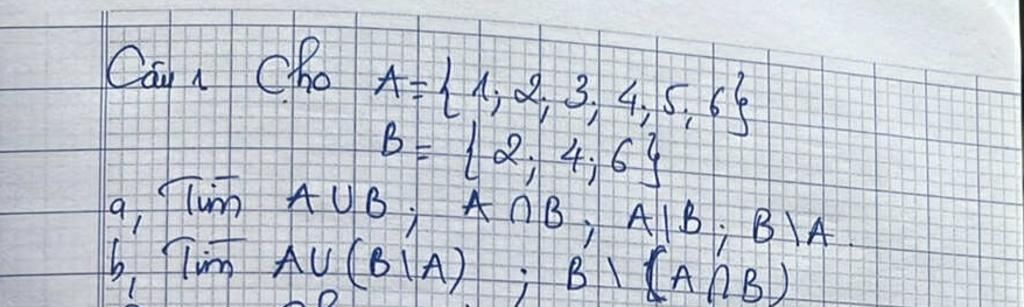 Câu 1 Cho A = { 1; 2; 3; 4; 5; 6}
B = { 2; 4; 6}
a, Tìm A ∪ B; A ∩ B; A \ B; B \ A.
b, Tìm A ∪ (B \ A) ; B \ (A ∩ B)